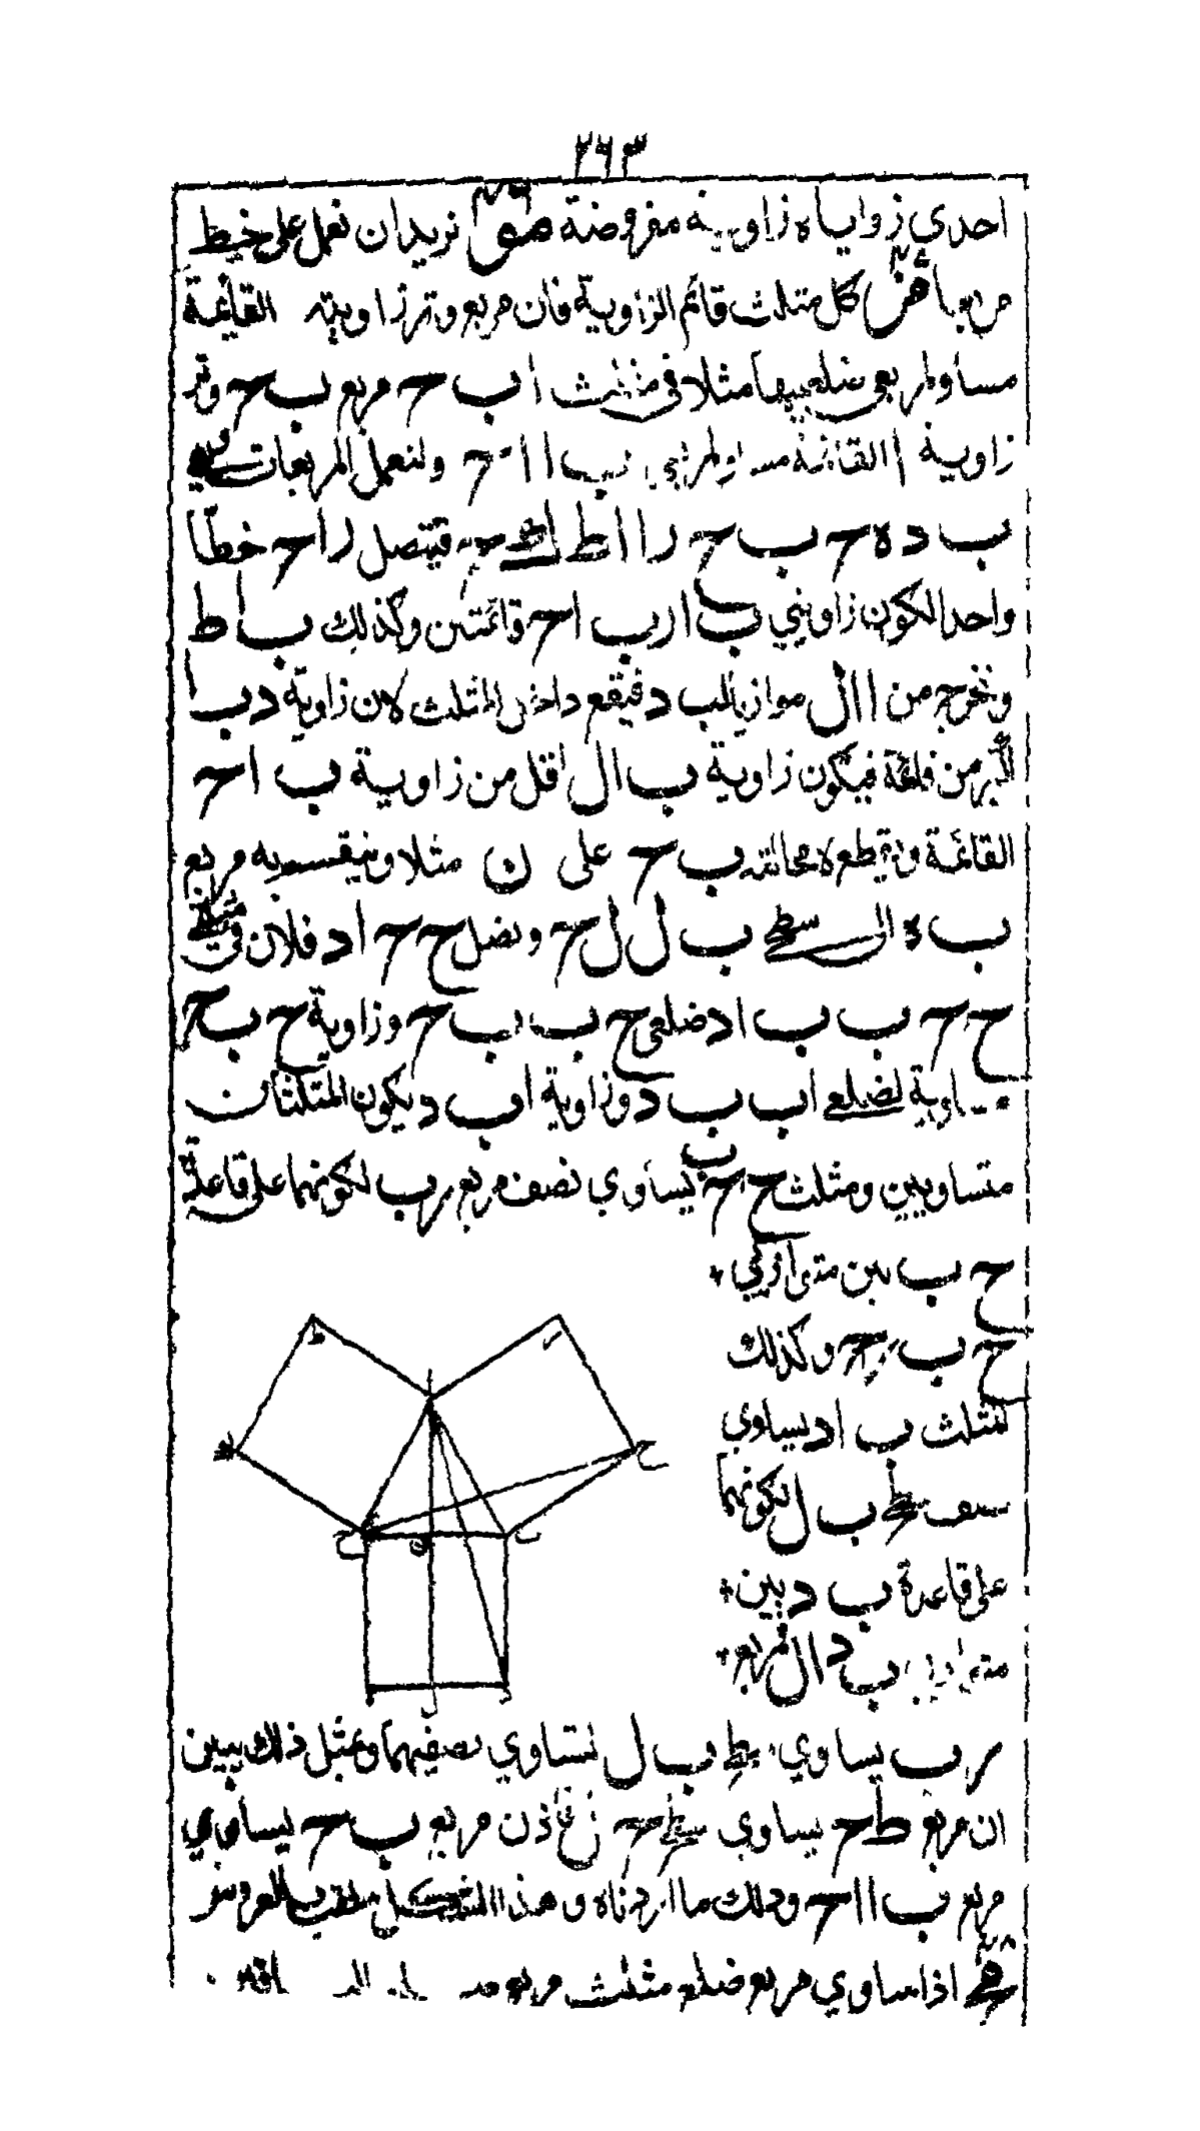 ٢٦٣
احدى زواياه زاوية مفروضة مو ٤٦ نريد ان نعمل على خيط
مربعا مز ٤٧ كل مثلث قائم الزاوية فان مربع وتر زاويته القائمة
مساو لمربعي ضلعيها مثلا في مثلث ا ب ح مربع ب ح وتر
زاوية ا القائمة مساو لمربعي ب ا ا ح ولنعمل المربعات
ب د ه ح ب ح ر ا ا ط ح فيتصل ر ا ح خطا
واحدا لكون زاويتي ب ا ر ب ا ح قائمتين وكذلك ب ا ط
ونخرج من ا ا ل موازيا لب د فيقع داخل المثلث لان زاوية د ب ا
اكبر من قائمة فيكون زاوية ب ا ل اقل من زاوية ب ا ح
القائمة ويقطع لا محالة ب ح على ن مثلا وينقسم به مربع
ب ه الى سطحي ب ل ل ح ونصل ح ح ا د فلان في مثلثي
ح ح ب ب ا د ضلعي ح ب ب ح وزاوية ح ب ح
مساوية لضلعي ا ب ب د وزاوية ا ب د يكون المثلثان
متساويين ومثلث ح ح ب يساوي نصف مربع ر ب لكونهما على قاعدة
ح ب بين متوازيي
ح ب ر ح وكذلك
مثلث ب ا د يساوي
نصف سطح ب ل لكونهما
على قاعدة ب د بين
متوازيي ب د ا ل فمربع
ر ب يساوي سطح ب ل لتساوي نصفيهما وبمثل ذلك يبين
ان مربع ط ح يساوي سطح ح ل فاذن مربع ب ح يساوي
مربعي ب ا ا ح وذلك ما اردناه وهذا الشكل ملقب بالعروس
مح ٤٨ اذا ساوي مربع ضلع مثلث مربعي
ط
ر
ا
ح
ح
ن
ب
ل
د